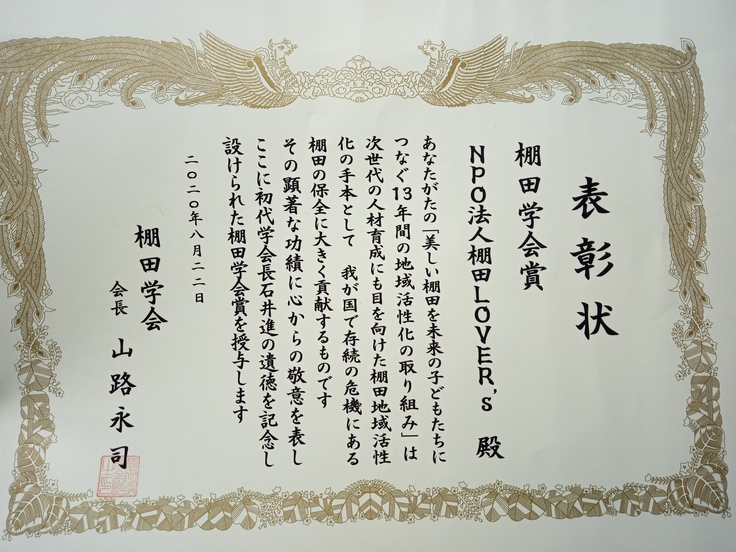 表彰状
棚田学会賞
NPO法人棚田LOVER's 殿
あなたがたの「美しい棚田を未来の子どもたちに
つなぐ13年間の地域活性化の取り組み」は
次世代の人材育成にも目を向けた棚田地域活性
化の手本として 我が国で存続の危機にある
棚田の保全に大きく貢献するものです
その顕著な功績に心からの敬意を表し
ここに初代学会長石井進の遺徳を記念し
設けられた棚田学会賞を授与します
二〇二〇年八月二二日
棚田学会
会長 山路永司